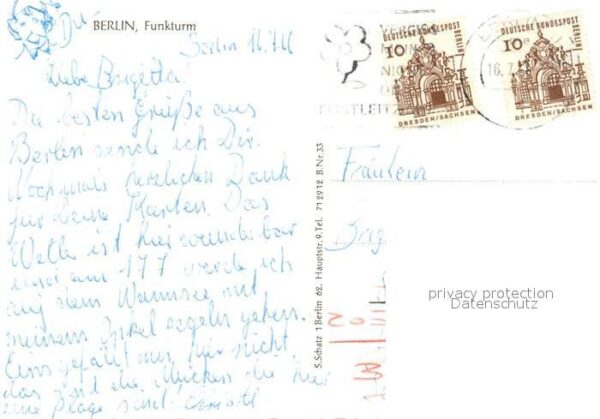 Du
BERLIN, Funkturm
Berlin 16.7.66
Liebe Brigitta!
Die besten Grüße aus
Berlin sende ich Dir.
Nochmals herzlichen Dank
für Deine Karten. Das
Wetter ist hier wunderbar
und am 17.7 werde ich
auf dem Wannsee mit
meinem Onkel segeln gehen.
Eins gefällt mir hier nicht
das sind die Mücken die hier
eine Plage sind.
S. Schatz 1 Berlin 62, Hauptstr. 9, Tel. 712912 B.Nr. 33
POSTLEITZ
16.7
DEUTSCHE BUNDESPOST
BERLIN
10
DRESDEN/SACHSEN
DEUTSCHE BUNDESPOST
BERLIN
10
DRESDEN/SACHSEN
Fräulein
privacy protection
Datenschutz